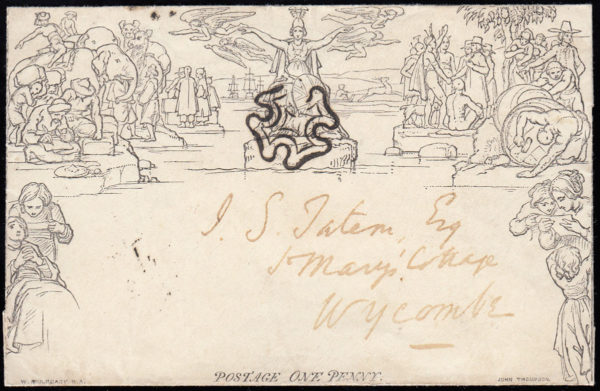 J. S. Tatem, Esq
St Mary's Cottage
Wycombe
POSTAGE ONE PENNY.
W. MULREADY R.A.
JOHN THOMPSON